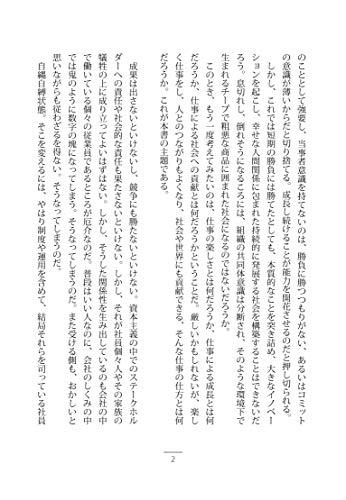 のこととして強要し、当事者意識を持てないのは、勝負に勝つつもりがない、あるいはコミット
の意識が薄いからだと切り捨てる。成長し続けることが能力を開花させるのだと押し切られる。
しかし、これでは短期の勝負には勝てたとしても、本質的なことを突き詰め、大きなイノベー
ションを起こし、幸せな人間関係に包まれた持続的に発展する社会を構築することはできないだ
ろう。息切れし、倒れそうになるころには、組織の共同体意識は分断され、そのような環境下で
生まれるチープで粗悪な商品に囲まれた社会になるのではないだろうか。
このとき、もう一度考えてみたいのは、仕事の楽しさとは何だろうか、仕事による成長とは何
だろうか、仕事による社会への貢献とは何だろうかということだ。厳しいかもしれないが、楽し
く仕事をし、人とのつながりもよくなり、社会や世界にも貢献できる、そんな仕事の仕方とは何
だろうか。これが本書の主題である。
成果は出さないといけないし、競争にも勝たないといけない。資本主義の中でのステークホル
ダーへの責任や社会的な責任も果たさないといけない。しかし、それが社員個々人やその家族の
犠牲の上に成り立ってよいはずはない。しかし、そうした関係性を生み出しているのも会社の中
で働いている個々の従業員であるところが厄介なのだ。普段はいい人なのに、会社のしくみの中
では鬼のように数字の塊になってしまう。そうなってしまうのだ。また受ける側も、おかしいと
思いながらも従わざるを得ない。そうなってしまうのだ。
自縄自縛状態。そこを変えるには、やはり制度や運用を含めて、結局それらを司っている社員
2